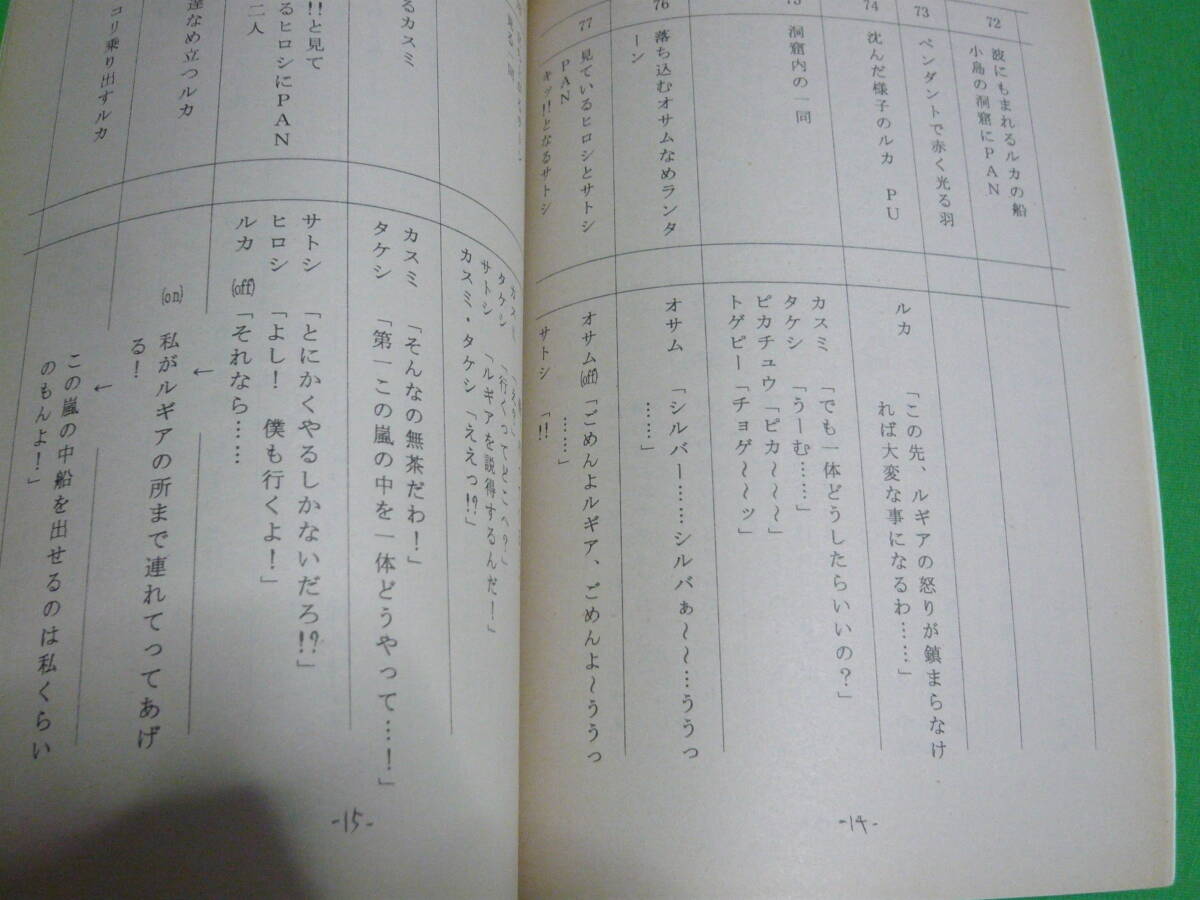 72
波にもまれるルカの船
小島の洞窟にPAN
73
ペンダントで赤く光る羽
74
沈んだ様子のルカ PU
ルカ 「この先、ルギアの怒りが鎮まらなけ
れば大変な事になるわ……」
洞窟内の一同
カスミ 「でも一体どうしたらいいの?」
タケシ 「うーむ……」
ピカチュウ「ピカ~~~」
トゲピー「チョゲ~~ッ」
76
落ち込むオサムなめランタ
ーン
オサム 「シルバー……シルバぁ~~…ううっ
……」
77
見ているヒロシとサトシ
PAN
キッ!!となるサトシ
オサム(off)「ごめんよルギア、ごめんよ~ううっ
……」
サトシ 「!!
-14-
タケシ 「行くってどこへ?」
サトシ 「ルギアを説得するんだ!」
カスミ・タケシ「ええっ!?」
るカスミ
カスミ 「そんなの無茶だわ!」
タケシ 「第一この嵐の中を一体どうやって…!」
!!と見て
るヒロシにPAN
二人
サトシ 「とにかくやるしかないだろ!?」
ヒロシ 「よし! 僕も行くよ!」
ルカ (off)「それなら……
達なめ立つルカ
←
(on) 私がルギアの所まで連れてってあげ
る!
コリ乗り出すルカ
←
この嵐の中船を出せるのは私くらい
のもんよ!」
-15-